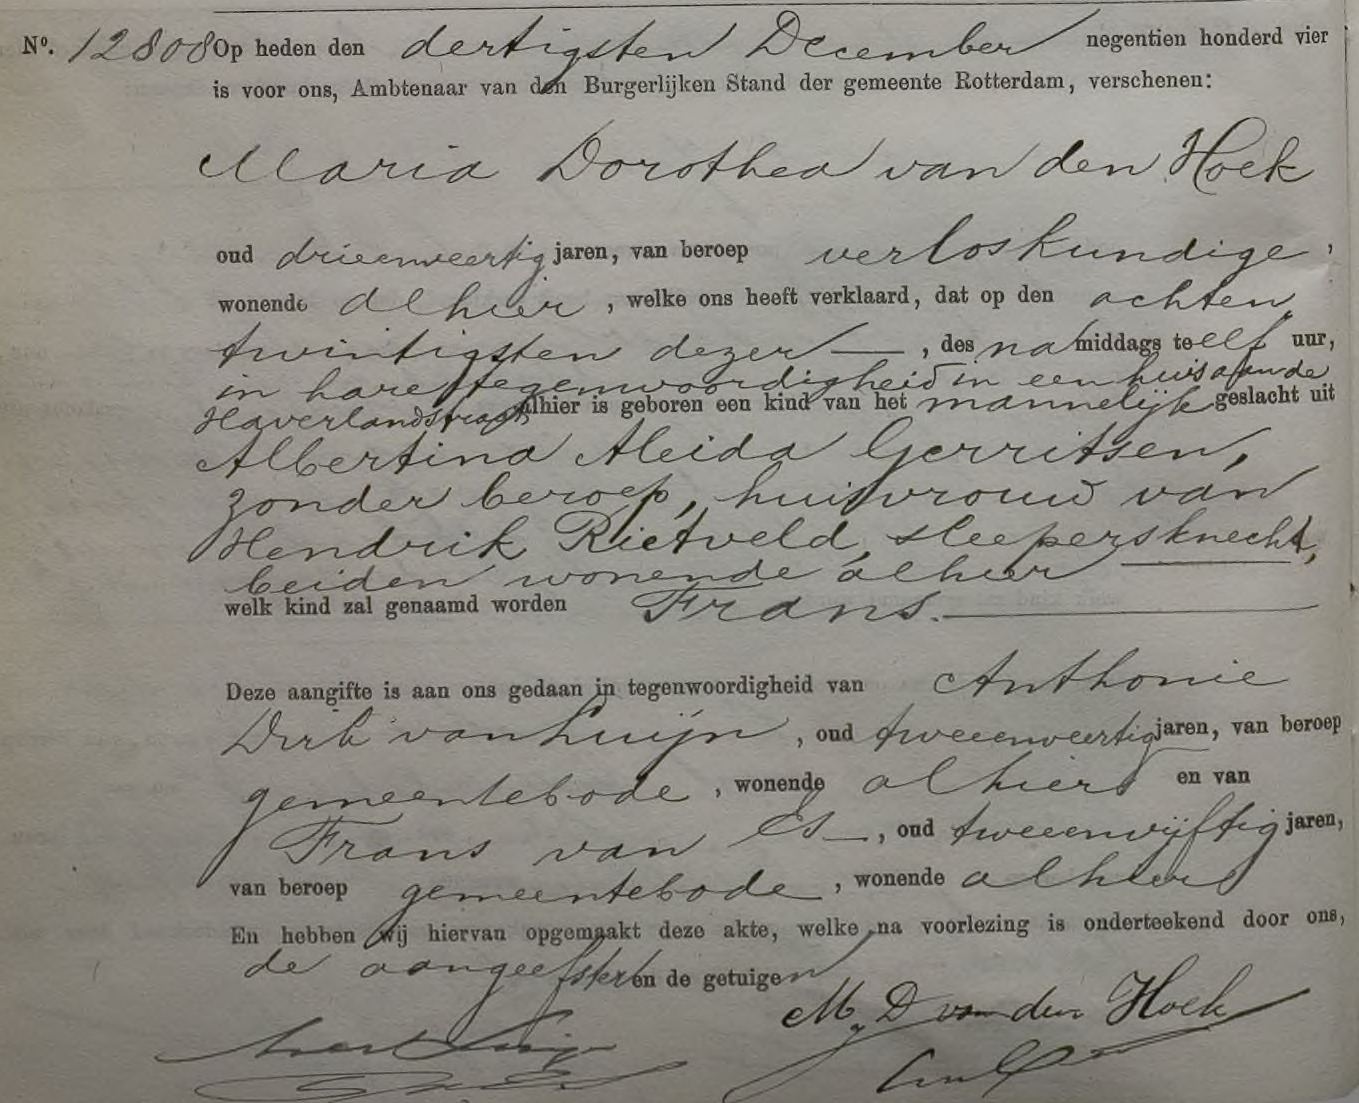 No. 12808 Op heden den dertigsten December negentien honderd vier
is voor ons, Ambtenaar van den Burgerlijken Stand der gemeente Rotterdam, verschenen:
Maria Dorothea van den Hoek
oud drieenveertig jaren, van beroep verloskundige,
wonende alhier, welke ons heeft verklaard, dat op den achten
twintigsten dezer —, des namiddags te elf uur,
in hare tegenwoordigheid in een huis aan de
Haverlandstraat alhier is geboren een kind van het mannelijk geslacht uit
Albertina Aleida Gerritsen,
zonder beroep, huisvrouw van
Hendrik Rietveld, sleepersknecht,
beiden wonende alhier —
welk kind zal genaamd worden Frans. —
Deze aangifte is aan ons gedaan in tegenwoordigheid van Anthonie
Dirk van Luijn, oud tweeenveertig jaren, van beroep
gemeentebode, wonende alhier en van
Frans van Es —, oud tweeenvijftig jaren,
van beroep gemeentebode, wonende alhier
En hebben wij hiervan opgemaakt deze akte, welke na voorlezing is onderteekend door ons,
de aangeefster en de getuigen
M. D van den Hoek